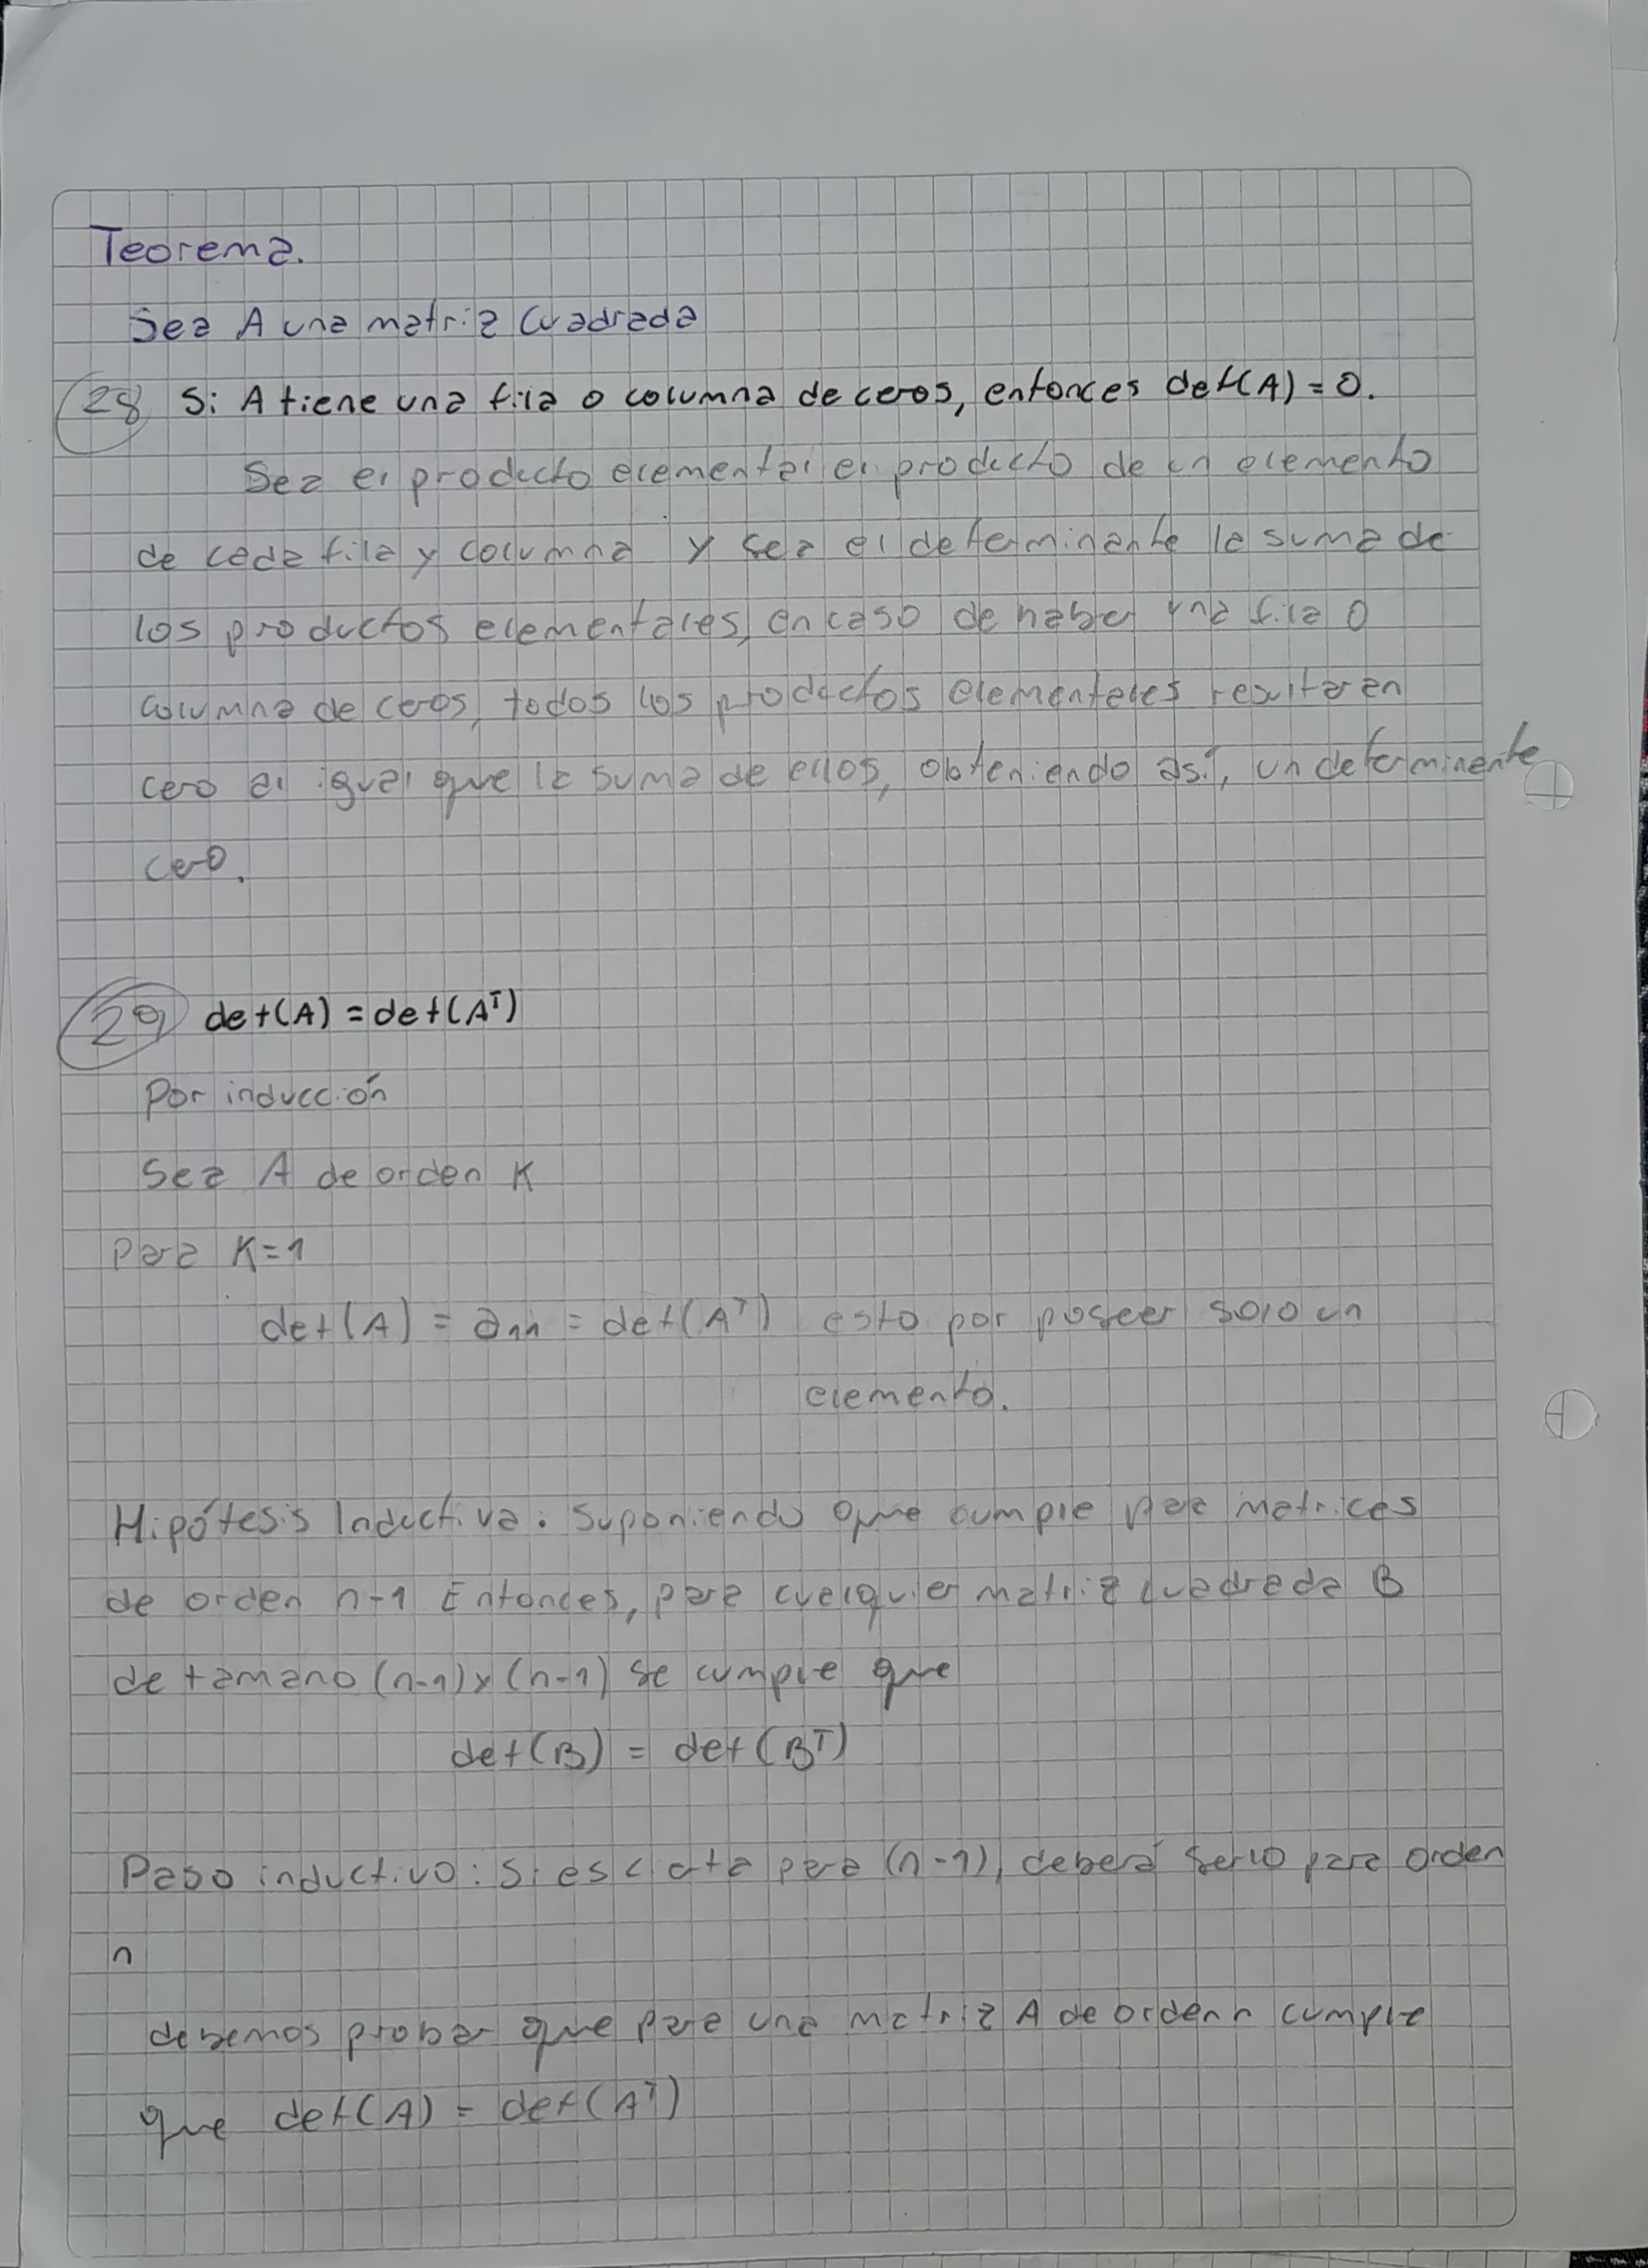 Teorema.
Sea A una matriz cuadrada
28 Si A tiene una fila o columna de ceros, entonces det(A) = 0.
Sea el producto elemental el producto de un elemento
de cada fila y columna y sea el determinante la suma de
los productos elementales, en caso de haber una fila o
columna de ceros, todos los productos elementales resultaran
cero al igual que la suma de ellos, obteniendo así, un determinante
cero.
29 det(A) = det(Aᵀ)
Por inducción
Sea A de orden K
Para K=1
det(A) = a₁₁ = det(Aᵀ) esto por poseer solo un
elemento.
Hipótesis Inductiva: Suponiendo que cumple para matrices
de orden n-1 Entonces, para cualquier matriz cuadrada B
de tamano (n-1)x(n-1) se cumple que
det(B) = det(Bᵀ)
Paso inductivo: Si es cierta para (n-1), deberá serlo para orden
n
debemos probar que para una matriz A de orden n cumple
que det(A) = det(Aᵀ)